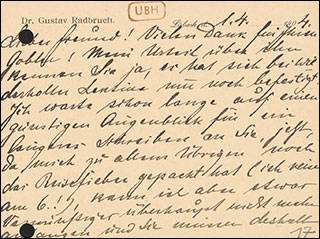 UBH
Dr. Gustav Radbruch.
1. 4. 1914.
Lieber Freund! Vielen Dank für Ihren
! Mein Urteil über ihn
kennen Sie ja, er hat sich bei wie-
derholter Lektüre nur noch befestigt.
Ich warte schon lange auf einen
günstigen Augenblick für ein
längeres Schreiben an Sie, jetzt,
da mich zu allem übrigen noch
das Reisefieber gepackt hat (ich reise
am 6.!), kann ich aber etwas
Vernünftiges überhaupt nicht mehr
anfangen und Sie müssen deshalb
17